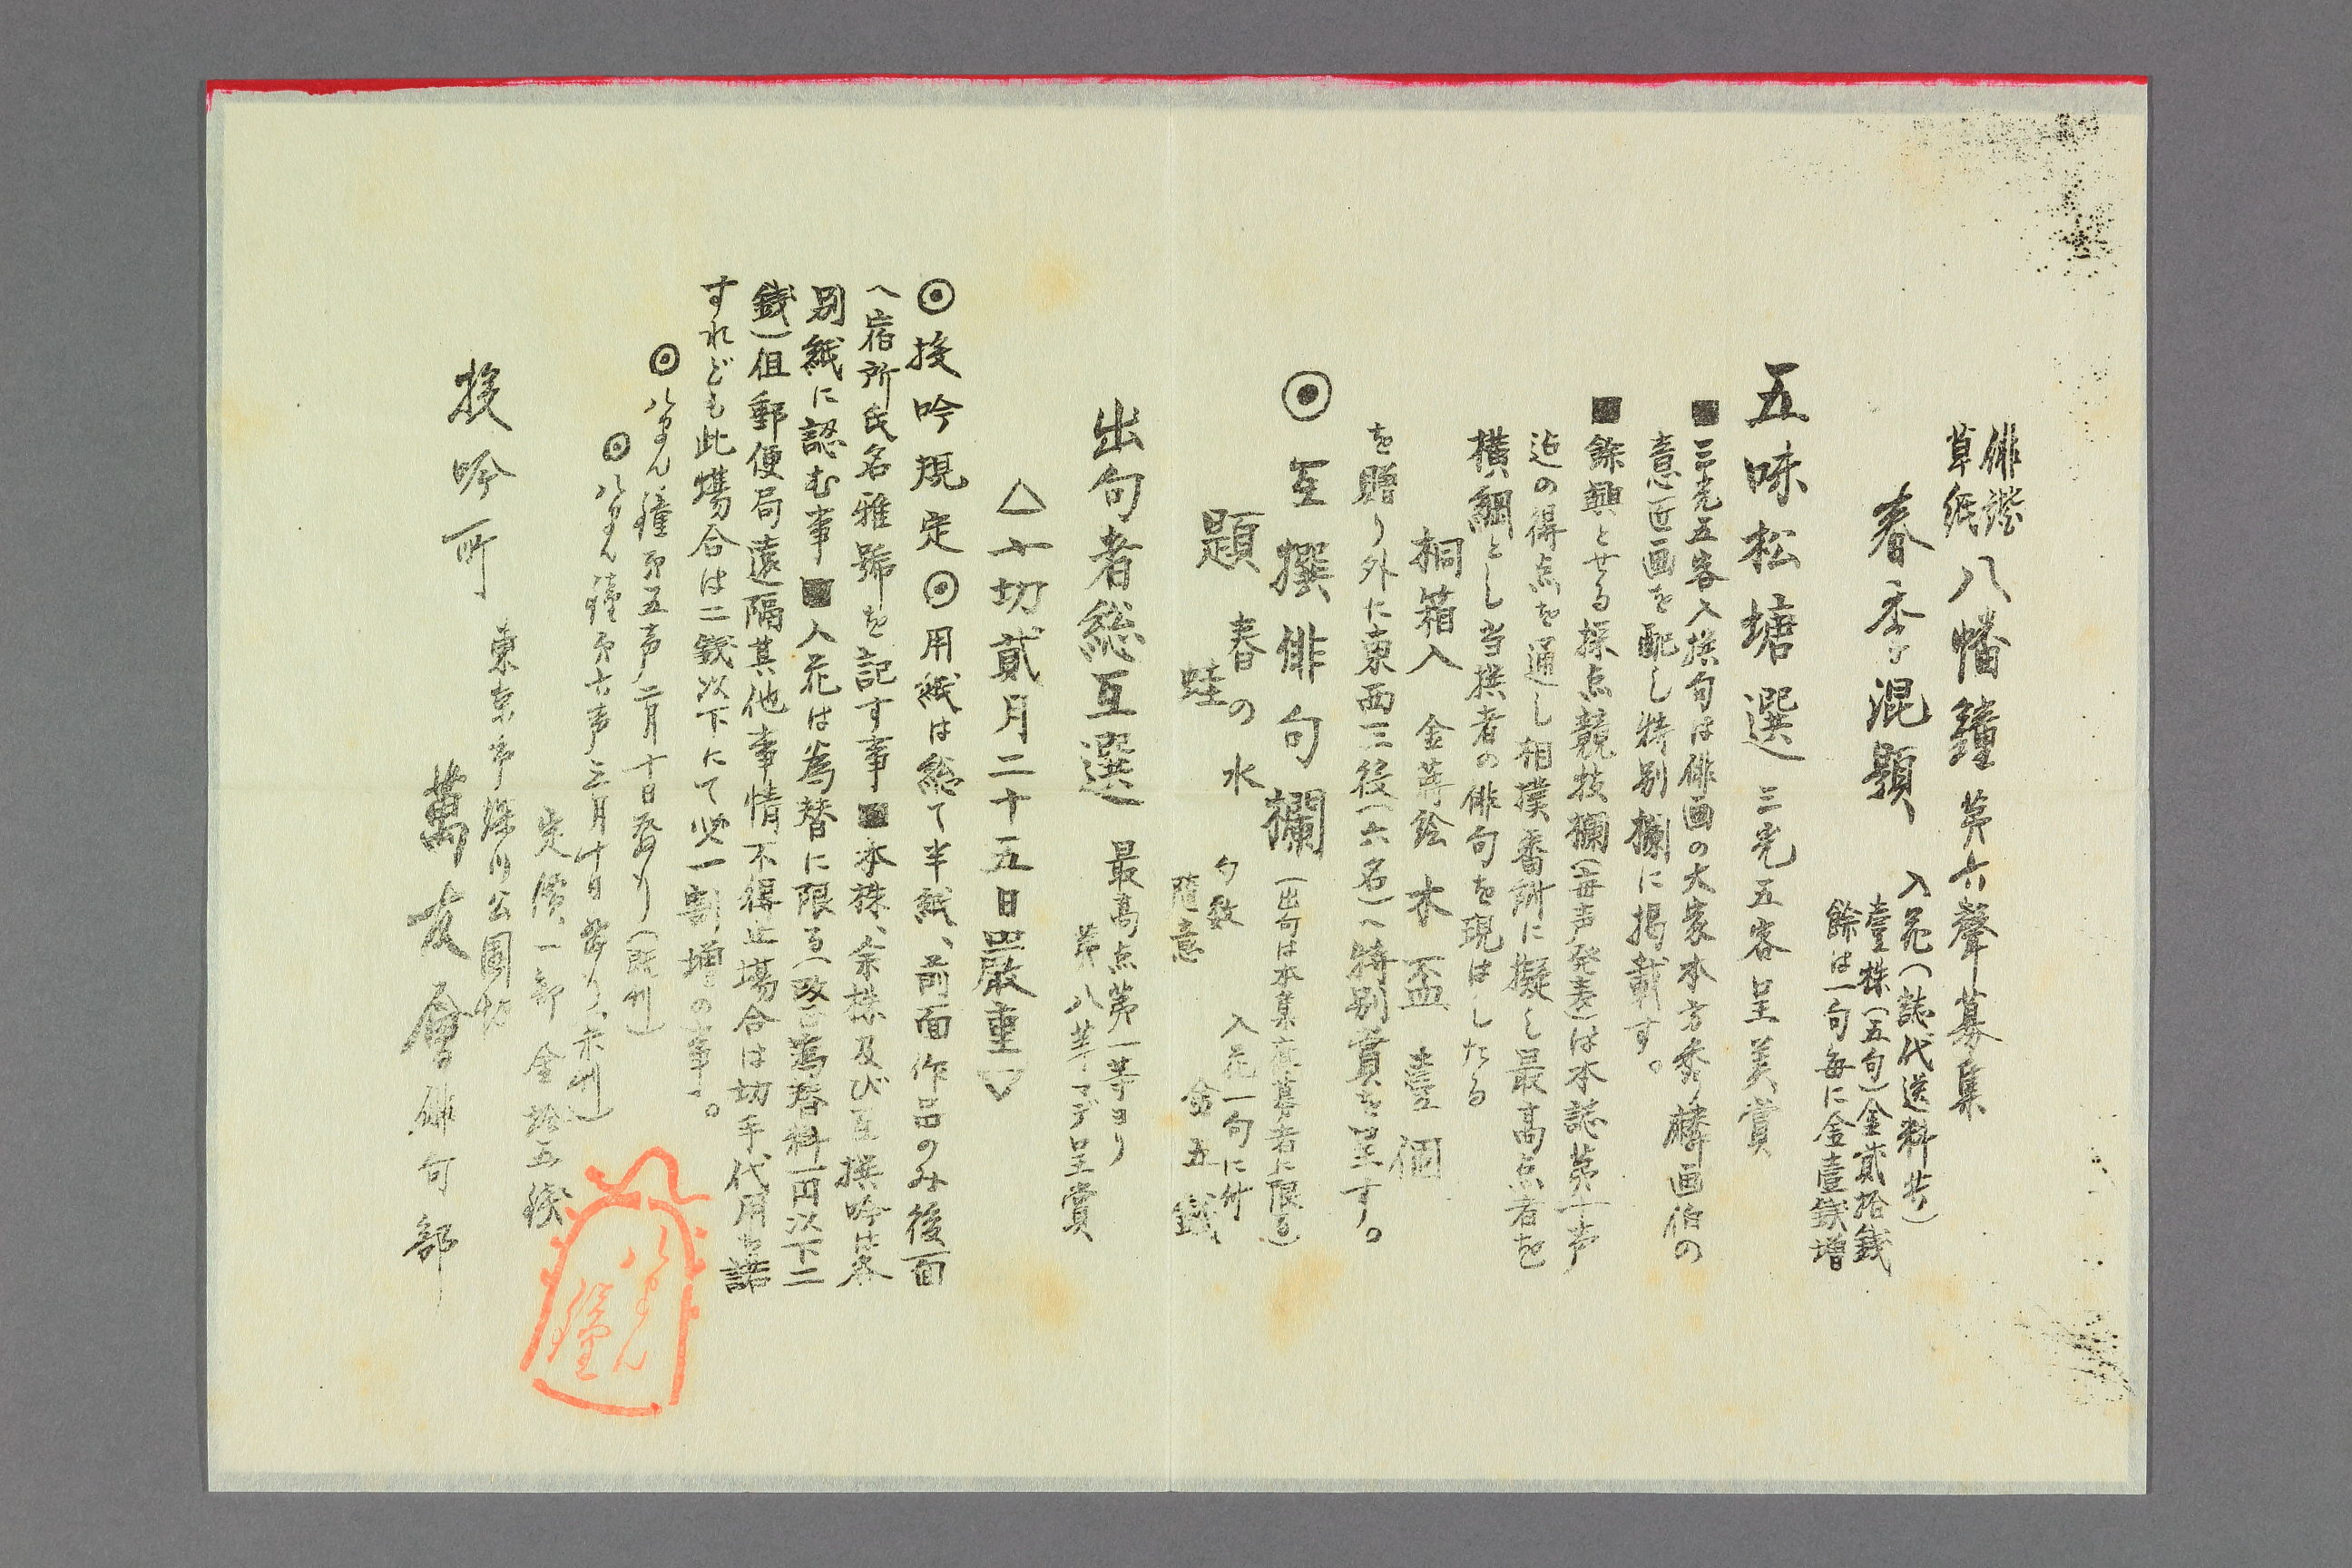 俳諧
草紙
八幡鐘 第六聲募集
春季混題
入花(誌代送料共)
壹株(五句)金貳拾錢
餘は一句毎に金壹錢増
五味松塘選 三光五客呈美賞
■三光五客入撰句は俳画の大家本方秀麟画伯の
意匠画を配し特別欄に掲載す。
■餘興とせる採点競技欄(毎声発表)は本誌第十声
迄の得点を通し相撲番附に擬し最高点者を
横綱とし当撰者の俳句を現はしたる
桐箱入 金蒔絵 木盃 壹個
を贈り外に東西三役(六名)へ特別賞を呈す。
◉互撰俳句欄(出句は本集応募者に限る)
題 春の水
蛙
句数
随意
入花一句に付
金五錢
出句者総互選
最高点第一等ヨリ
第八等マデ呈賞
△〆切貳月二十五日 厳重▽
◉投吟規定◉用紙は総て半紙、前面作品のみ後面
へ宿所氏名雅號を記す事■本株、余株及び互撰吟は各
別紙に認む事■入花は為替に限る(改正為替料一円以下二
錢)但郵便局遠隔其他事情不得止場合は切手代用を諾
すれども此場合は二錢以下にて必一割増の事。
◎八まん鐘第五声二月十日発行(既刊)
◎八まん鐘第六声三月十日発行(未刊)
定價一部 金拾五錢
東京市深川公園内
投吟所 萬友會俳句部
八まん
鐘